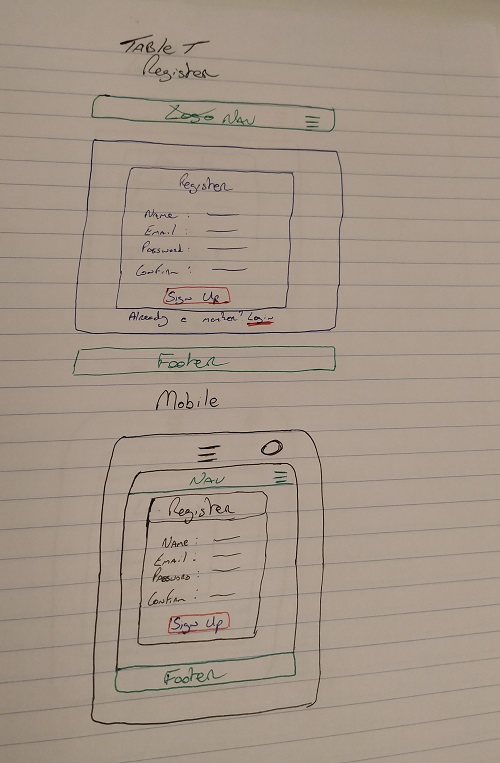 TABLET
Register
Logo NAV
Register
NAME :
EMAIL :
PASSWORD :
Confirm :
Sign Up
Already a member? Login
Footer
Mobile
NAV
Register
NAME :
EMAIL :
PASSWORD :
Confirm :
Sign Up
Footer